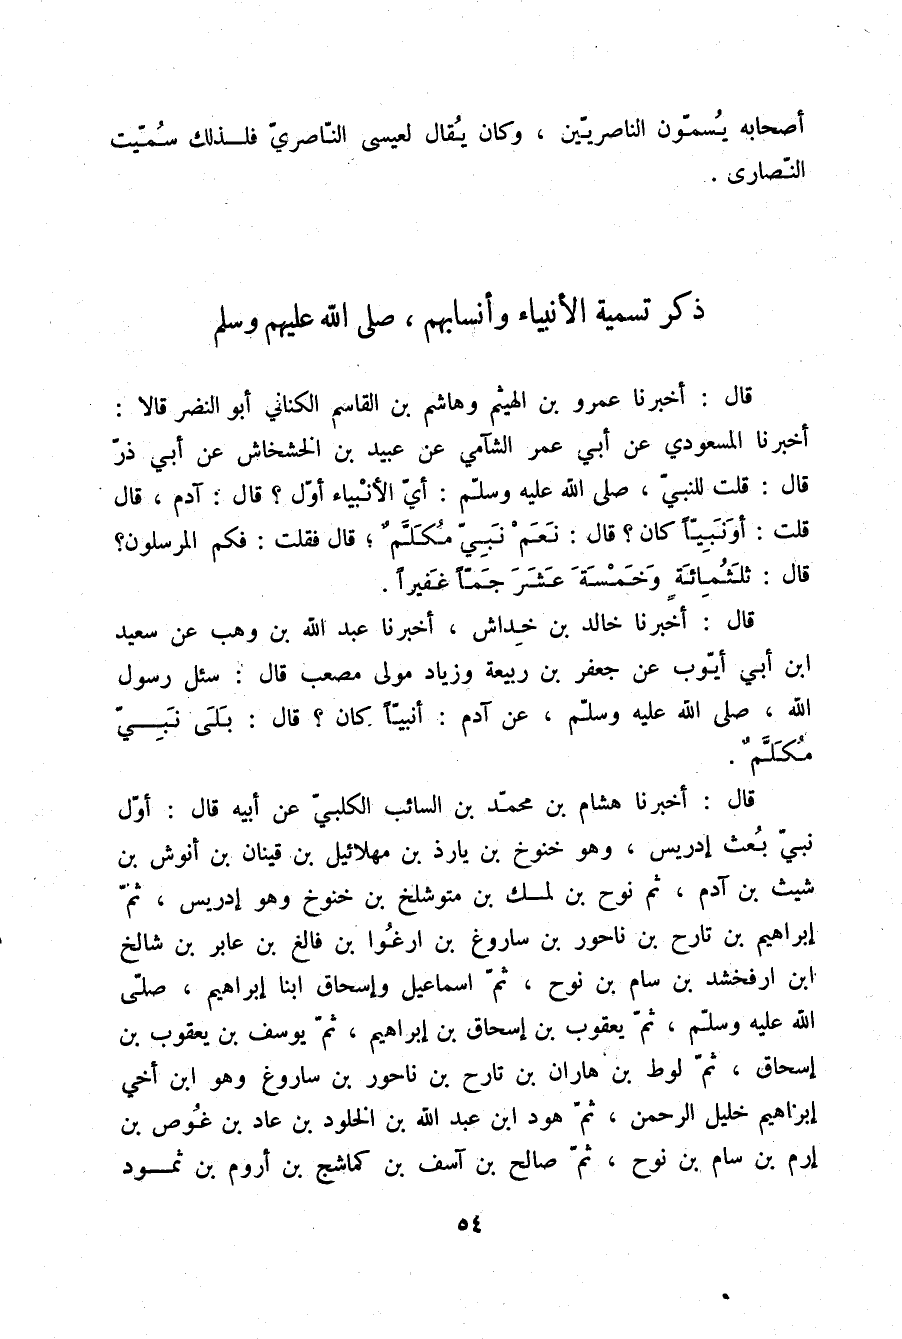 أصحابه يُسمّون الناصريّين ، وكان يُقال لعيسى النّاصريّ فلـذلك سُمّيت
النّصارى .
ذكر تسمية الأنبياء وأنسابهم ، صلى الله عليهم وسلم
قال : أخبرنا عمرو بن الهيثم وهاشم بن القاسم الكناني أبو النضر قالا :
أخبرنا المسعودي عن أبي عمر الشآمي عن عبيد بن الخشخاش عن أبي ذرّ
قال : قلت للنبيّ ، صلى الله عليه وسلّم : أيّ الأنْبياء أوّل ؟ قال : آدم ، قال
قلت : أوَنَبِيّاً كان ؟ قال : نَعَمْ نَبِيّ مُكَلَّمٌ ؛ قال فقلت : فكم المرسلون؟
قال : ثلَثُمِائَةٍ وَخَمْسَةَ عَشَرَ جَمّاً غَفيراً .
قال : أخبرنا خالد بن خِداش ، أخبرنا عبد الله بن وهب عن سعيد
ابن أبي أيّوب عن جعفر بن ربيعة وزياد مولى مصعب قال : سئل رسول
الله ، صلى الله عليه وسلّم ، عن آدم : أنبيّاً كان ؟ قال : بَلَى نَبِـيّ
مُكَلَّمٌ .
قال : أخبرنا هشام بن محمّد بن السائب الكلبيّ عن أبيه قال : أوّل
نبيّ بُعث إدريس ، وهو خنوخ بن يارذ بن مهلائيل بن قينان بن أنوش بن
شيث بن آدم ، ثم نوح بن لمـك بن متوشلخ بن خنوخ وهو إدريس ، ثمّ
إبراهيم بن تارح بن ناحور بن ساروغ بن ارغُوا بن فالغ بن عابر بن شالخ
ابن ارفخشد بن سام بن نوح ، ثمّ اسماعيل وإسحاق ابنا إبراهيم ، صلّى
الله عليه وسلّم ، ثمّ يعقوب بن إسحاق بن إبراهيم ، ثمّ يوسف بن يعقوب بن
إسحاق ، ثمّ لوط بن هاران بن تارح بن ناحور بن ساروغ وهو ابن أخي
إبراهيم خليل الرحمن ، ثمّ هود ابن عبد الله بن الخلود بن عاد بن عُوص بن
إرم بن سام بن نوح ، ثمّ صالح بن آسف بن كماشج بن أروم بن ثمـود
٥٤